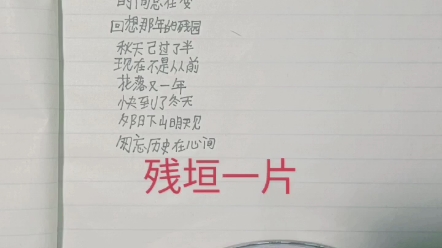 时间总在变
回想那年的残园
秋天已过了半
现在不是从前
花落又一年
快到了冬天
夕阳下山明天见
勿忘历史在心间
残垣一片